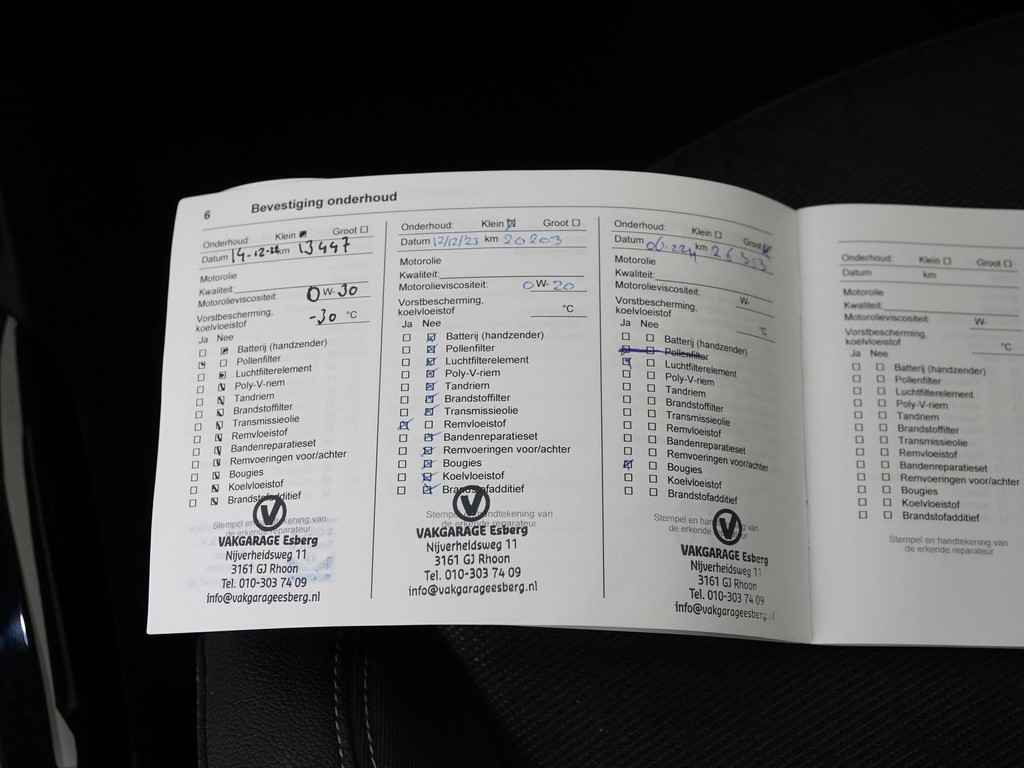 6 Bevestiging onderhoud
Onderhoud: Klein Groot
Datum 14-12-22 km 13447
Motorolie
Kwaliteit:
Motorolieviscositeit: 0 W-30
Vorstbescherming,
koelvloeistof -30 °C
Ja Nee
Batterij (handzender)
Pollenfilter
Luchtfilterelement
Poly-V-riem
Tandriem
Brandstoffilter
Transmissieolie
Remvloeistof
Bandenreparatieset
Remvoeringen voor/achter
Bougies
Koelvloeistof
Brandstofadditief
Stempel en handtekening van
de erkende reparateur
VAKGARAGE Esberg
Nijverheidsweg 11
3161 GJ Rhoon
Tel. 010-303 74 09
info@vakgarageesberg.nl
Onderhoud: Klein Groot
Datum 12/12/23 km 20203
Motorolie
Kwaliteit:
Motorolieviscositeit: 0 W- 20
Vorstbescherming,
koelvloeistof °C
Ja Nee
Batterij (handzender)
Pollenfilter
Luchtfilterelement
Poly-V-riem
Tandriem
Brandstoffilter
Transmissieolie
Remvloeistof
Bandenreparatieset
Remvoeringen voor/achter
Bougies
Koelvloeistof
Brandstofadditief
Stempel en handtekening van
de erkende reparateur
VAKGARAGE Esberg
Nijverheidsweg 11
3161 GJ Rhoon
Tel. 010-303 74 09
info@vakgarageesberg.nl
Onderhoud: Klein Groot
Datum km
Motorolie
Kwaliteit:
Motorolieviscositeit: W-
Vorstbescherming,
koelvloeistof °C
Ja Nee
Batterij (handzender)
Pollenfilter
Luchtfilterelement
Poly-V-riem
Tandriem
Brandstoffilter
Transmissieolie
Remvloeistof
Bandenreparatieset
Remvoeringen voor/achter
Bougies
Koelvloeistof
Brandstofadditief
Stempel en handtekening van
de erkende reparateur
VAKGARAGE Esberg
Nijverheidsweg 11
3161 GJ Rhoon
Tel. 010-303 74 09
info@vakgarageesberg.nl
Onderhoud: Klein Groot
Datum km
Motorolie
Kwaliteit:
Motorolieviscositeit: W-
Vorstbescherming,
koelvloeistof °C
Ja Nee
Batterij (handzender)
Pollenfilter
Luchtfilterelement
Poly-V-riem
Tandriem
Brandstoffilter
Transmissieolie
Remvloeistof
Bandenreparatieset
Remvoeringen voor/achter
Bougies
Koelvloeistof
Brandstofadditief
Stempel en handtekening van
de erkende reparateur